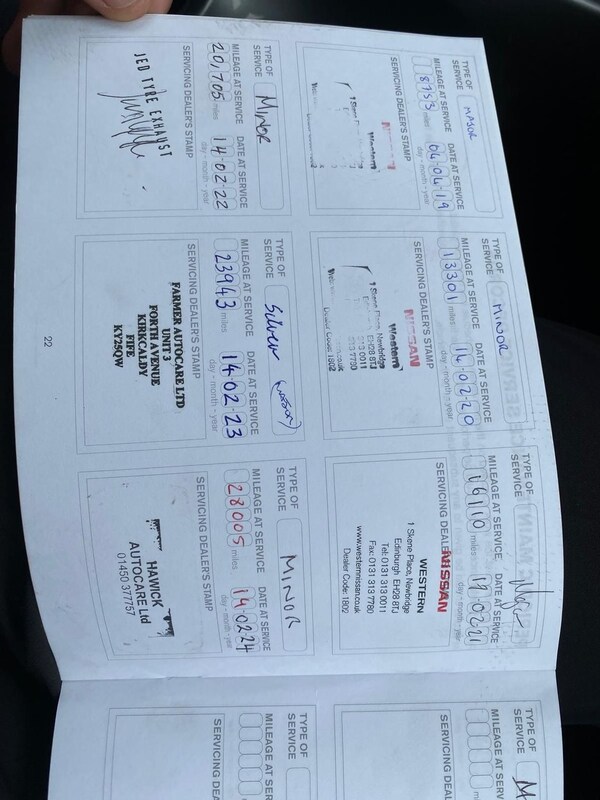 TYPE OF
SERVICE
MAJOR
MILEAGE AT SERVICE
8753 miles
DATE AT SERVICE
04 04 19
day - month - year
SERVICING DEALER'S STAMP
NISSAN
Western
1 Skene
TYPE OF
SERVICE
MINOR
MILEAGE AT SERVICE
13301 miles
DATE AT SERVICE
14 02 20
day - month - year
SERVICING DEALER'S STAMP
NISSAN
Western
1 Skene Place, Newbridge
EH28 8TJ
313 0011
313 7780
Dealer Code: 1802
TYPE OF
SERVICE
Major
MILEAGE AT SERVICE
16110 miles
DATE AT SERVICE
day - month - year
SERVICING DEALER'S STAMP
NISSAN
WESTERN
1 Skene Place, Newbridge
Edinburgh EH28 8TJ
Tel: 0131 313 0011
Fax: 0131 313 7780
www.westernnissan.co.uk
Dealer Code: 1802
TYPE OF
SERVICE
MILEAGE AT SERVICE
SERVICING DEA
TYPE OF
SERVICE
MINOR
MILEAGE AT SERVICE
20,705 miles
DATE AT SERVICE
14 02 22
day - month - year
SERVICING DEALER'S STAMP
JED TYRE EXHAUST
TYPE OF
SERVICE
Silver
MILEAGE AT SERVICE
23943 miles
DATE AT SERVICE
14 02 23
day - month - year
SERVICING DEALER'S STAMP
FARMER AUTOCARE LTD
UNIT 3
FORTH AVENUE
KIRKCALDY
FIFE
KY25QW
TYPE OF
SERVICE
MINOR
MILEAGE AT SERVICE
28005 miles
DATE AT SERVICE
14 02 24
day - month - year
SERVICING DEALER'S STAMP
HAWICK
AUTOCARE Ltd
01450 377757
TYPE OF
SERVICE
MILEAGE AT SERVICE
SERVICING DEA
22